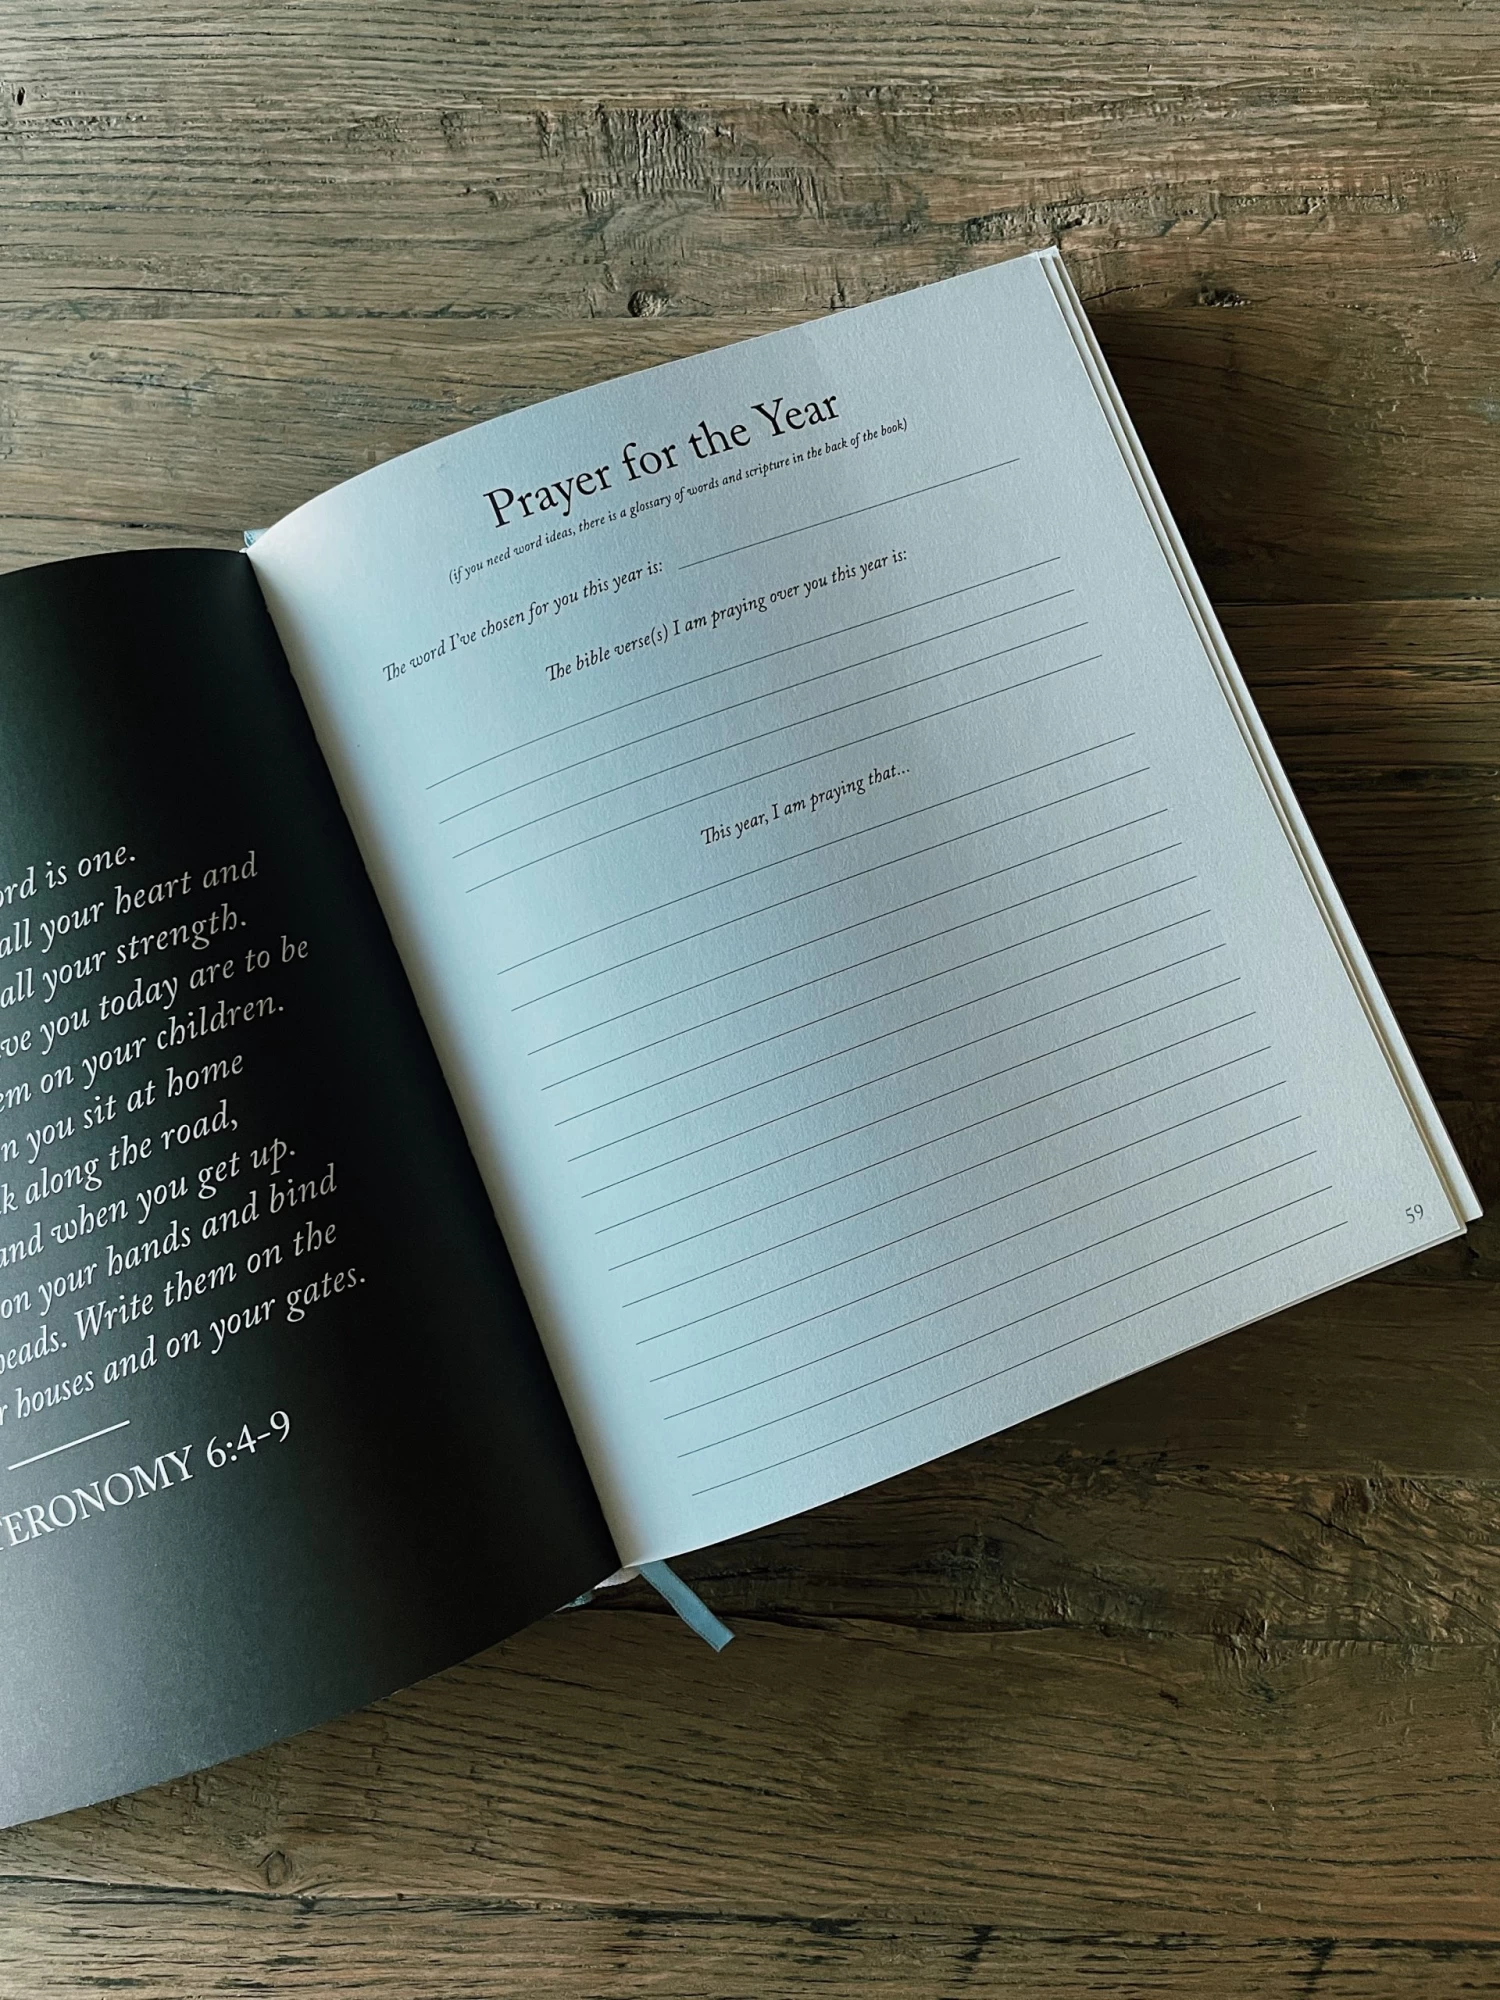 is one.
all your heart and
all your strength.
you today are to be
on your children.
you sit at home
along the road,
and when you get up.
on your hands and bind
Write them on the
houses and on your gates.
6:4-9
Prayer for the Year
(if you need word ideas, there is a glossary of words and scripture in the back of the book)
The word I've chosen for you this year is:
The bible verse(s) I am praying over you this year is:
This year, I am praying that...
59